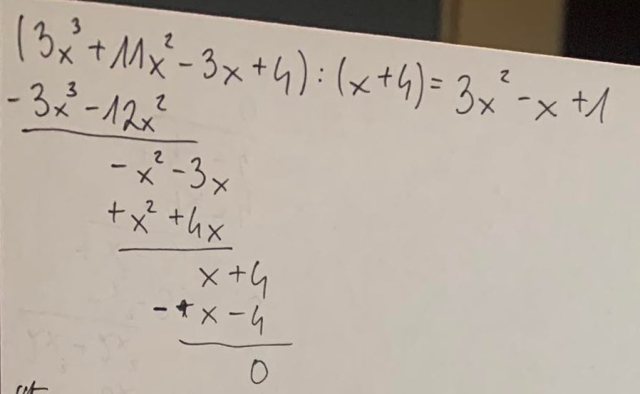 (3x³ + 11x² - 3x + 4) : (x + 4) = 3x² - x + 1
- 3x³ - 12x²
- x² - 3x
+ x² + 4x
x + 4
- x - 4
0